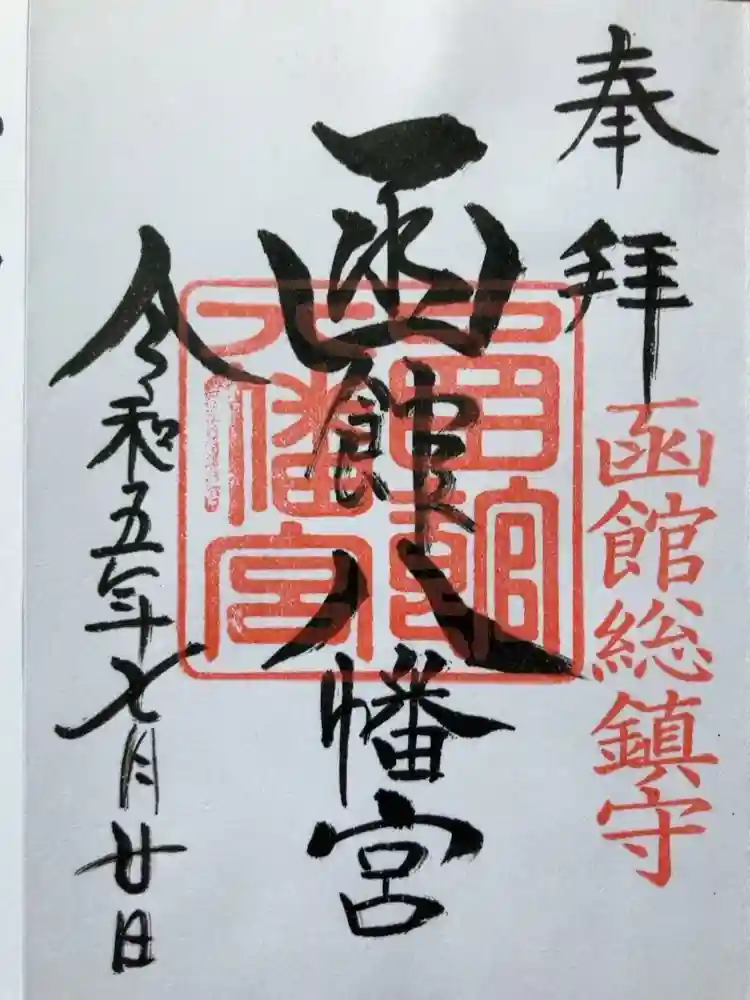 奉拝
函館総鎮守
函館八幡宮
函館八幡宮
令和五年七月廿日